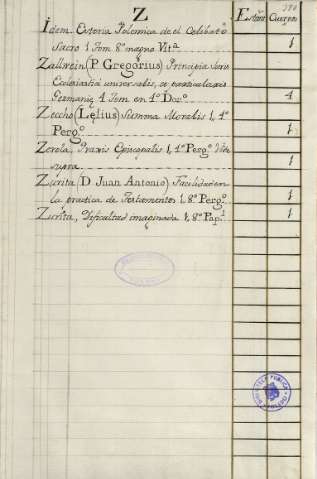 Z
Estánt. Cuerpo
Idem. Estoria Polemica de el Celibato
Sacro 1 Tom 8º magno Vitª
1
Zallwein (P Gregorius) Principia Juris
Eclesiastici universalis, et particularis
Germaniæ 4 Tom en 4º
4
Zeccho (Lelius) Summa Moralis 1, 4º
Pergº
1
Zerola, Praxis Episcopalis 1, 4º Pergº Vide
supra
1
Zurita (D Juan Antonio) Facilidad en
la practica de Testamentos 1. 8º Pergº
1
Zurita, Dificultad imaginada 1, 8º Papl
1